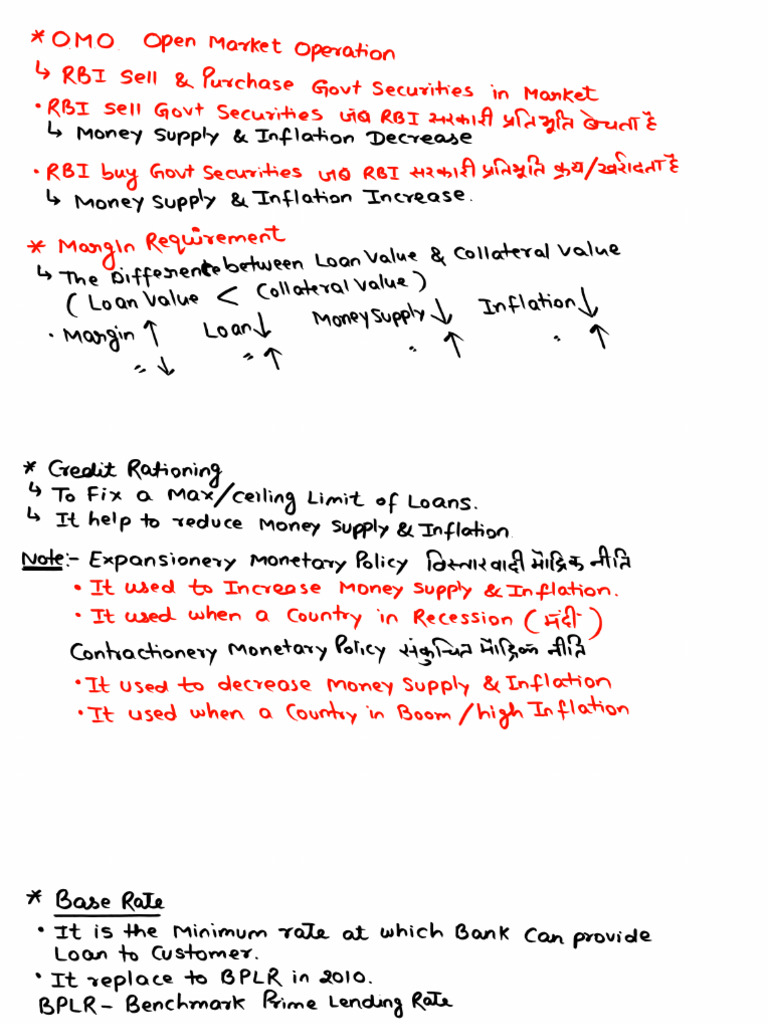 * O.M.O. Open Market Operation
↳ RBI Sell & Purchase Govt Securities in Market
• RBI Sell Govt Securities जब RBI सरकारी प्रतिभूति बेचता है
↳ Money Supply & Inflation Decrease
• RBI buy Govt Securities जब RBI सरकारी प्रतिभूति क्रय/खरीदता है
↳ Money Supply & Inflation Increase.
* Margin Requirement
↳ The Difference between Loan Value & Collateral Value
( Loan Value < Collateral Value )
• Margin ↑ Loan ↓ Money Supply ↓ Inflation ↓
" ↓ " ↑ " ↑ " ↑
* Credit Rationing
↳ To Fix a Max/ceiling Limit of Loans.
↳ It help to reduce Money Supply & Inflation
Note:- Expansionery Monetary Policy विस्तारवादी मौद्रिक नीति
• It used to Increase Money Supply & Inflation.
• It used when a Country in Recession ( मंदी )
Contractionery Monetary Policy संकुचित मौद्रिक नीति
• It used to decrease Money Supply & Inflation
• It used when a Country in Boom/high Inflation
* Base Rate
• It is the Minimum rate at which Bank Can provide
Loan to Customer.
• It replace to BPLR in 2010.
BPLR - Benchmark Prime Lending Rate